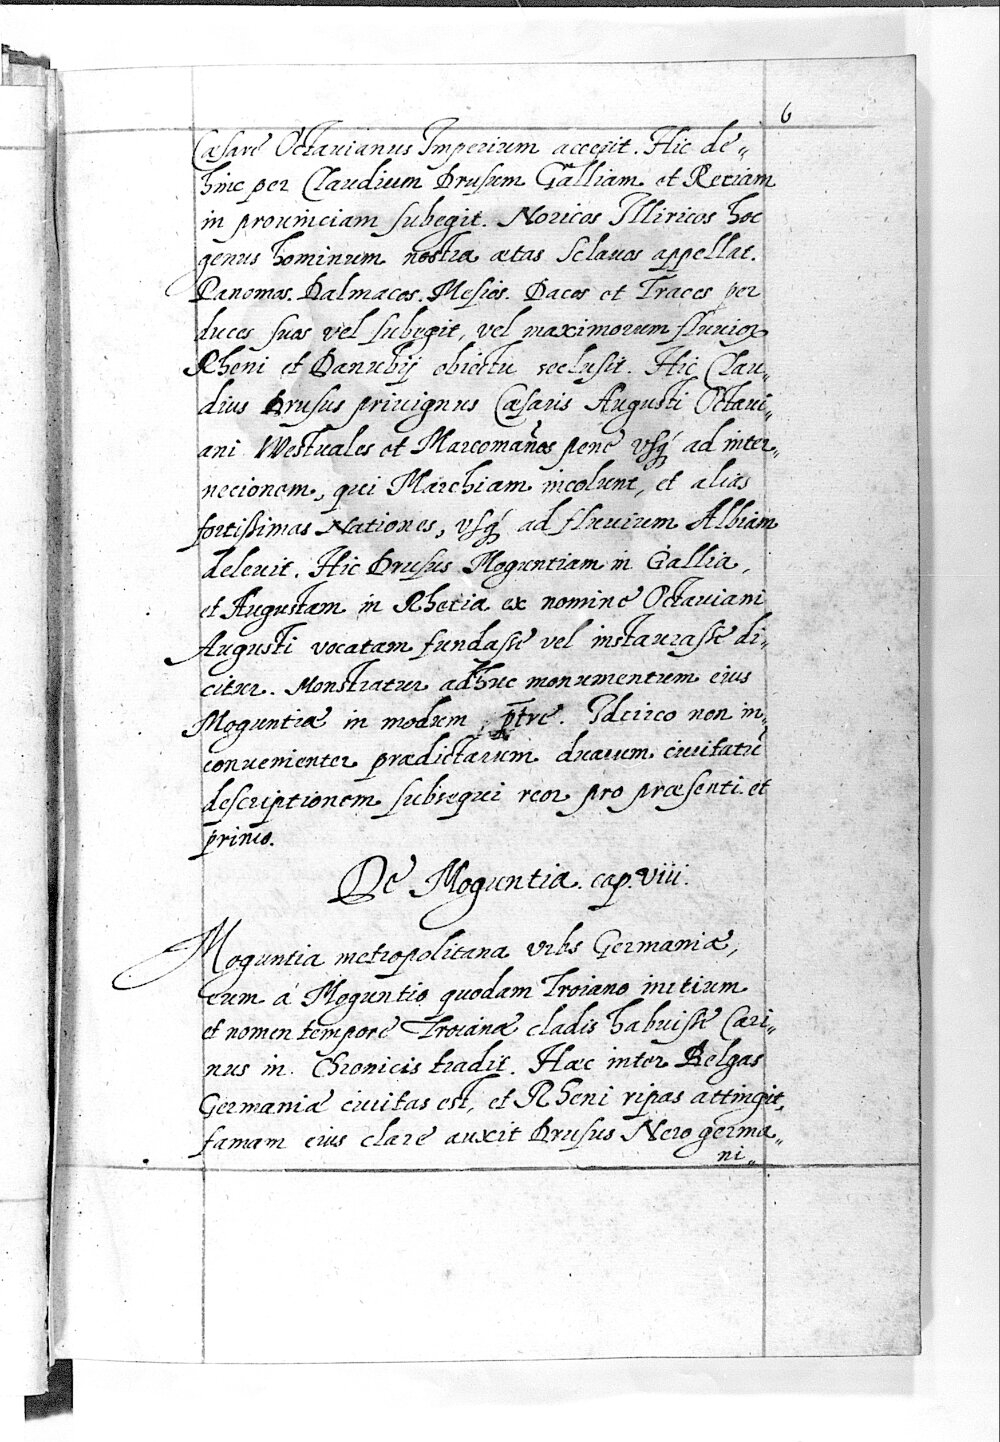 6
Cæsare Octauianus Imperium accepit. Hic de„
hinc per Claudium Drusum Galliam et Retiam
in prouinciam subegit. Noricos Illiricos hoc
genus hominum nostra ætas Sclauos appellat.
Panomos. Dalmaces. Mesios. Dacos et Traces per
duces suos vel subegit, vel maximorum fluuior
Rheni et Danubij obiectu reclusit. Hic Clau„
dius Drusus priuignus Cæsaris Augusti Octaui„
ani Westuales et Marcomaños pene vsq́ ad inter„
necionem, qui Marchiam incolunt, et alias
fortissimas Nationes, vsq́ ad fluuium Albiam
deleuit. Hic Drusus Moguntiam in Gallia,
et Augustam in Rhetia ex nomine Octauiani
Augusti vocatam fundasse vel instaurasse di„
citur. Monstratur adhuc monumentum eius
Moguntiæ in modum p̄tre. Idcirco non in„
conuenienter prædictarum duarum ciuitatũ
descriptionem subsequi reor pro præsenti et
primo.
De Moguntia. cap. viii.
Moguntia metropolitana vrbs Germaniæ,
cum á Moguntio quodam Troiano initium
et nomen tempore Troianæ cladis habuisse Cari„
nus in Chronicis tradit. Hæc inter Belgas
Germaniæ ciuitas est, et Rheni ripas attingit,
famam eius clare auxit Drusus Nero germa„
ni„